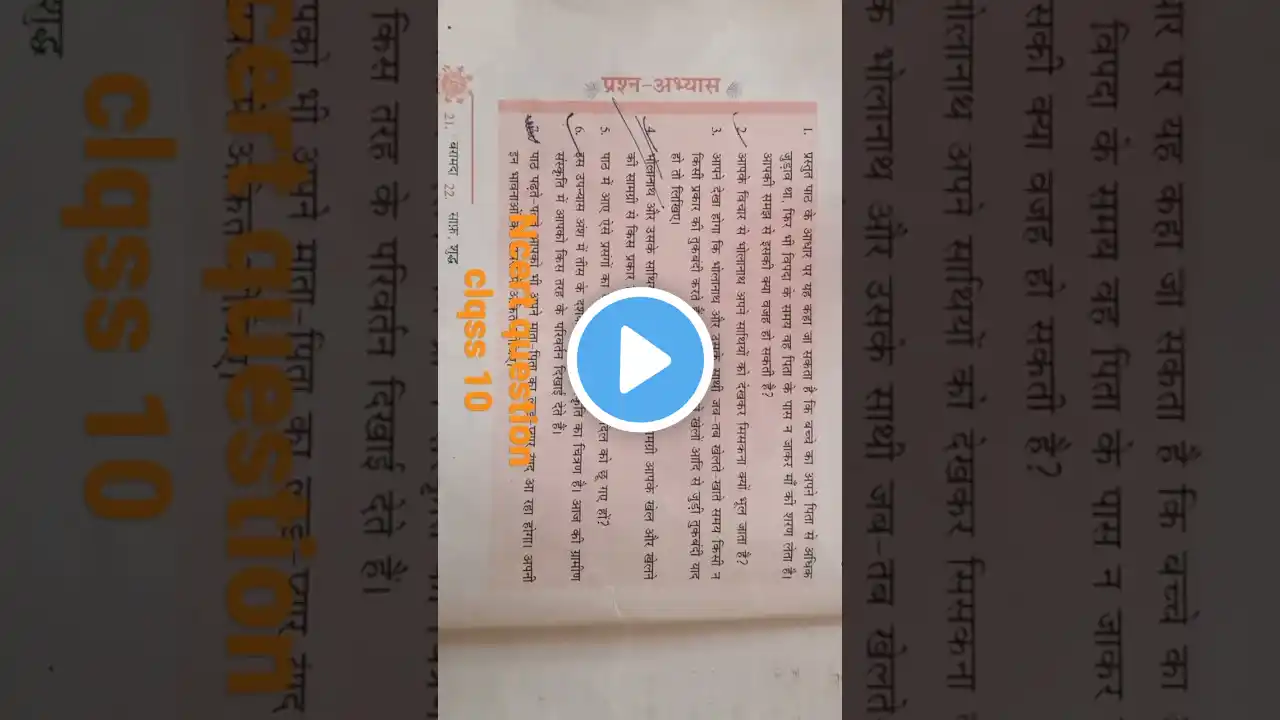 प्रश्न-अभ्यास
1. प्रस्तुत पाठ के आधार पर यह कहा जा सकता है कि बच्चे का अपने पिता से अधिक
जुड़ाव था, फिर भी विपदा के समय वह पिता के पास न जाकर माँ की शरण लेता है।
आपकी समझ से इसकी क्या वजह हो सकती है?
2. आपके विचार से भोलानाथ अपने साथियों को देखकर सिसकना क्यों भूल जाता है?
3. आपने देखा होगा कि भोलानाथ और उसके साथी जब-तब खेलते-खाते समय किसी न
किसी प्रकार की तुकबंदी करते खेलों आदि से जुड़ी तुकबंदी याद
हो तो लिखिए।
4. भोलानाथ और उसके सामग्री आपके खेल और खेलने
की सामग्री से किस प्रकार
5. पाठ में आए ऐसे प्रसंगों का दिल को छू गए हों?
6. इस उपन्यास अंश में तीस के का चित्रण है। आज की ग्रामीण
संस्कृति में आपको किस तरह के परिवर्तन दिखाई देते हैं।
पाठ पढ़ते- आपको भी अपने माता-पिता का याद आ रहा होगा। अपनी
इन भावनाओं
21. बरामदा 22. साफ़, शुद्ध
Ncert question
clqss 10